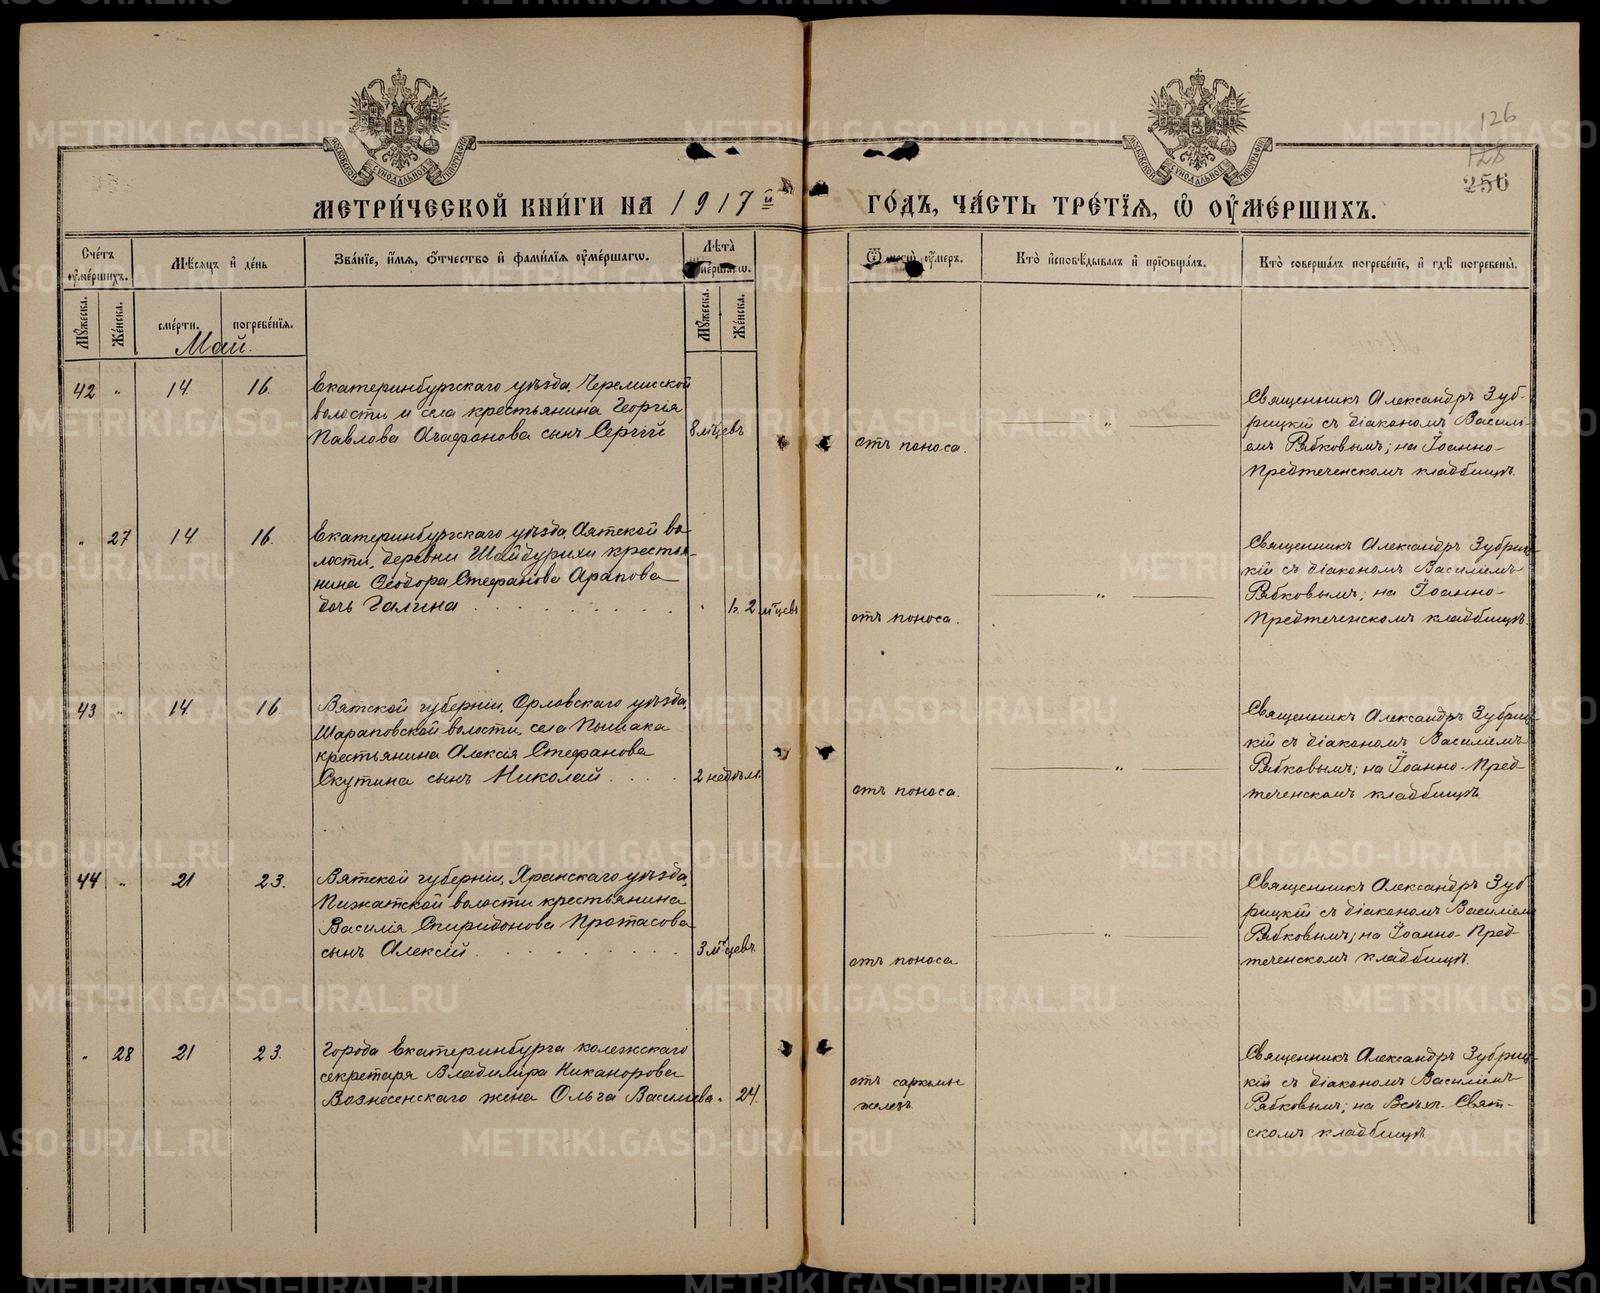 126
128
256
МОСКОВСКОЙ СѴНОДАЛЬНОЙ ТИПОГРАФІИ
МОСКОВСКОЙ СѴНОДАЛЬНОЙ ТИПОГРАФІИ
МЕТРИ́ЧЕСКОЙ КНИ́ГИ НА 1917 й
ГО́ДЪ, ЧА́СТЬ ТРЕ́ТІѦ, Ѡ҆ ОУ҆МЕ́РШИХЪ.
Сче́тъ оу҆ме́ршихъ.
Мѣ́сѧцъ и҆ де́нь
Зва́нїе, и҆́мѧ, ѻ҆́тчество и҆ фами́лїѧ оу҆ме́ршагѡ.
Лѣ́та оу҆ме́ршагѡ.
Ѿ чегѡ̀ оу҆́меръ.
Кто̀ и҆сповѣ́дывалъ и҆ прїѡбща́лъ.
Кто̀ соверша́лъ погребе́нїе, и҆ гдѣ̀ погребены̀.
Мꙋ́жеска.
Же́нска.
сме́рти.
погребе́нїѧ.
Мꙋ́жеска.
Же́нска.
Май.
42 " 14 16.
Екатеринбургскаго уѣзда, Черемисской
волости и села крестьянина Георгія
Павлова Агафонова сынъ Сергій 8 м-цевъ
отъ поноса.
"
Священникъ Александръ Зуб-
рицкій съ діакономъ Василі-
емъ Рябковымъ; на Іоанно-
Предтеченскомъ кладбищѣ.
" 27 14 16.
Екатеринбургскаго уѣзда Аятской во-
лости, деревни Шайдурихи крестья-
нина Ѳеодора Стефанова Арапова
дочь Галина . . . . . . . . . " 1 г. 2 м-цевъ
отъ поноса.
"
Священникъ Александръ Зубриц-
кій съ діакономъ Василіемъ
Рябковымъ; на Іоанно-
Предтеченскомъ кладбищѣ.
43 " 14 16
Вятской губерніи, Орловскаго уѣзда,
Шараповской волости, села Пышака
крестьянина Алексія Стефанова
Скутина сынъ Николай . . . . 2 недѣли.
отъ поноса.
"
Священникъ Александръ Зубриц-
кій съ діакономъ Василіемъ
Рябковымъ; на Іоанно-Пред-
теченскомъ кладбищѣ.
44 " 21 23.
Вятской губерніи, Яранскаго уѣзда,
Пижатской волости крестьянина
Василія Спиридонова Протасова
сынъ Алексій . . . . . . . . . 3 м-цевъ.
отъ поноса
"
Священникъ Александръ Зуб
рицкій съ діакономъ Василіемъ
Рябковымъ; на Іоанно-Пред-
теченскомъ кладбищѣ.
" 28 21 23.
Города Екатеринбурга колежскаго
секретаря Владиміра Никанорова
Вознесенскаго жена Ольга Васильева. 24.
отъ саркомы
железъ.
Священникъ Александръ Зубриц-
кій съ діакономъ Василіемъ
Рябковымъ; на Всѣхъ-Свят-
скомъ кладбищѣ
METRIKI.GASO-URAL.RU